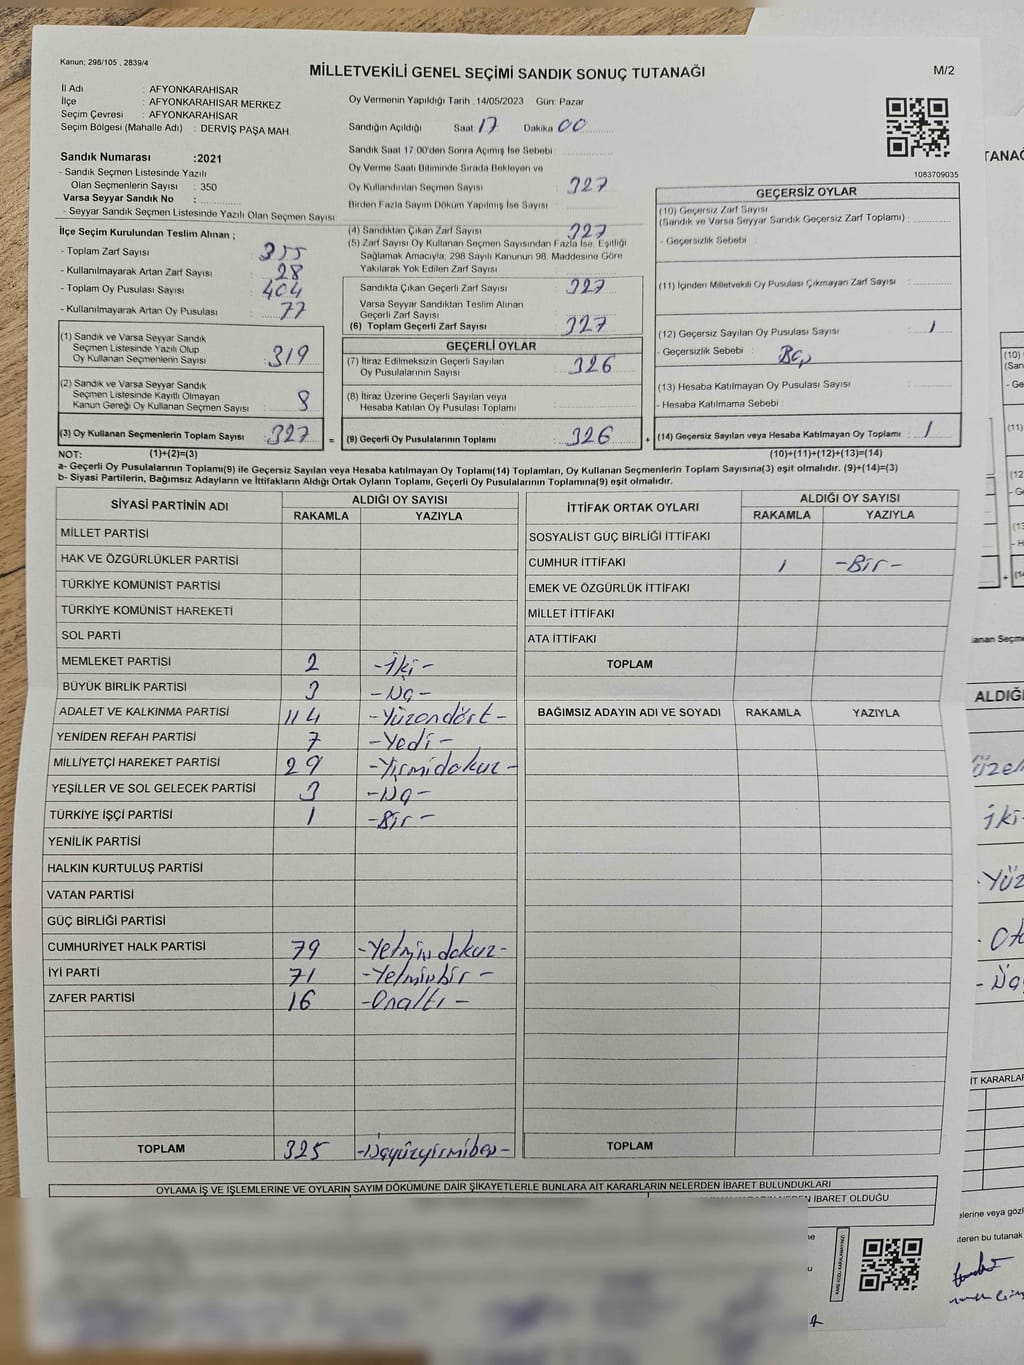 Kanun; 298/105 , 2839/4
MİLLETVEKİLİ GENEL SEÇİMİ SANDIK SONUÇ TUTANAĞI
M/2
İl Adı : AFYONKARAHİSAR
İlçe : AFYONKARAHİSAR MERKEZ
Seçim Çevresi : AFYONKARAHİSAR
Seçim Bölgesi (Mahalle Adı) : DERVİŞ PAŞA MAH.
Sandık Numarası :2021
- Sandık Seçmen Listesinde Yazılı
Olan Seçmenlerin Sayısı : 350
Varsa Seyyar Sandık No :
- Seyyar Sandık Seçmen Listesinde Yazılı Olan Seçmen Sayısı:
İlçe Seçim Kurulundan Teslim Alınan ;
- Toplam Zarf Sayısı 355
- Kullanılmayarak Artan Zarf Sayısı 28
- Toplam Oy Pusulası Sayısı 404
- Kullanılmayarak Artan Oy Pusulası 77
(1) Sandık ve Varsa Seyyar Sandık
Seçmen Listesinde Yazılı Olup
Oy Kullanan Seçmenlerin Sayısı 319
(2) Sandık ve Varsa Seyyar Sandık
Seçmen Listesinde Kayıtlı Olmayan
Kanun Gereği Oy Kullanan Seçmen Sayısı 8
(3) Oy Kullanan Seçmenlerin Toplam Sayısı 327 =
Oy Vermenin Yapıldığı Tarih :14/05/2023 Gün: Pazar
Sandığın Açıldığı Saat 17 Dakika 00
Sandık Saat 17:00'den Sonra Açmış İse Sebebi :
Oy Verme Saati Bitiminde Sırada Bekleyen ve
Oy Kullandırılan Seçmen Sayısı 327
Birden Fazla Sayım Döküm Yapılmış İse Sayısı :
(4) Sandıktan Çıkan Zarf Sayısı 327
(5) Zarf Sayısı Oy Kullanan Seçmen Sayısından Fazla İse, Eşitliği
Sağlamak Amacıyla, 298 Sayılı Kanunun 98. Maddesine Göre
Yakılarak Yok Edilen Zarf Sayısı :
Sandıkta Çıkan Geçerli Zarf Sayısı 327
Varsa Seyyar Sandıktan Teslim Alınan
Geçerli Zarf Sayısı :
(6) Toplam Geçerli Zarf Sayısı 327
GEÇERLİ OYLAR
(7) İtiraz Edilmeksizin Geçerli Sayılan
Oy Pusulalarının Sayısı 326
(8) İtiraz Üzerine Geçerli Sayılan veya
Hesaba Katılan Oy Pusulaları Toplamı
(9) Geçerli Oy Pusulalarının Toplamı 326 +
1083709035
GEÇERSİZ OYLAR
(10) Geçersiz Zarf Sayısı
(Sandık ve Varsa Seyyar Sandık Geçersiz Zarf Toplamı) :
- Geçersizlik Sebebi :
(11) İçinden Milletvekili Oy Pusulası Çıkmayan Zarf Sayısı :
(12) Geçersiz Sayılan Oy Pusulası Sayısı : 1
- Geçersizlik Sebebi : Boş
(13) Hesaba Katılmayan Oy Pusulası Sayısı :
- Hesaba Katılmama Sebebi :
(14) Geçersiz Sayılan veya Hesaba Katılmayan Oy Toplamı : 1
NOT: (1)+(2)=(3) (10)+(11)+(12)+(13)=(14)
a- Geçerli Oy Pusulalarının Toplamı(9) ile Geçersiz Sayılan veya Hesaba katılmayan Oy Toplamı(14) Toplamları, Oy Kullanan Seçmenlerin Toplam Sayısına(3) eşit olmalıdır. (9)+(14)=(3)
b- Siyasi Partilerin, Bağımsız Adayların ve İttifakların Aldığı Ortak Oyların Toplamı, Geçerli Oy Pusulalarının Toplamına(9) eşit olmalıdır.
SİYASİ PARTİNİN ADI ALDIĞI OY SAYISI
RAKAMLA YAZIYLA
MİLLET PARTİSİ
HAK VE ÖZGÜRLÜKLER PARTİSİ
TÜRKİYE KOMÜNİST PARTİSİ
TÜRKİYE KOMÜNİST HAREKETİ
SOL PARTİ
MEMLEKET PARTİSİ 2 -İki-
BÜYÜK BİRLİK PARTİSİ 3 -Üç-
ADALET VE KALKINMA PARTİSİ 114 -Yüzondört-
YENİDEN REFAH PARTİSİ 7 -Yedi-
MİLLİYETÇİ HAREKET PARTİSİ 29 -Yirmidokuz-
YEŞİLLER VE SOL GELECEK PARTİSİ 3 -Üç-
TÜRKİYE İŞÇİ PARTİSİ 1 -Bir-
YENİLİK PARTİSİ
HALKIN KURTULUŞ PARTİSİ
VATAN PARTİSİ
GÜÇ BİRLİĞİ PARTİSİ
CUMHURİYET HALK PARTİSİ 79 -Yetmişdokuz-
İYİ PARTİ 71 -Yetmişbir-
ZAFER PARTİSİ 16 -Onaltı-
TOPLAM 325 -Üçyüzyirmibeş-
İTTİFAK ORTAK OYLARI ALDIĞI OY SAYISI
RAKAMLA YAZIYLA
SOSYALİST GÜÇ BİRLİĞİ İTTİFAKI
CUMHUR İTTİFAKI 1 -Bir-
EMEK VE ÖZGÜRLÜK İTTİFAKI
MİLLET İTTİFAKI
ATA İTTİFAKI
TOPLAM
BAĞIMSIZ ADAYIN ADI VE SOYADI RAKAMLA YAZIYLA
TOPLAM
OYLAMA İŞ VE İŞLEMLERİNE VE OYLARIN SAYIM DÖKÜMÜNE DAİR ŞİKAYETLERLE BUNLARA AİT KARARLARIN NELERDEN İBARET BULUNDUKLARI
İBARET OLDUĞU
TANAĞ
(10)
(San
- Ge
(11)
(12
- G
(13
- H
+ (14
anan Seçme
ALDIĞI
iki-
-Yüz
- Üç
İT KARARLAR
elerine veya gözl
steren bu tutanak